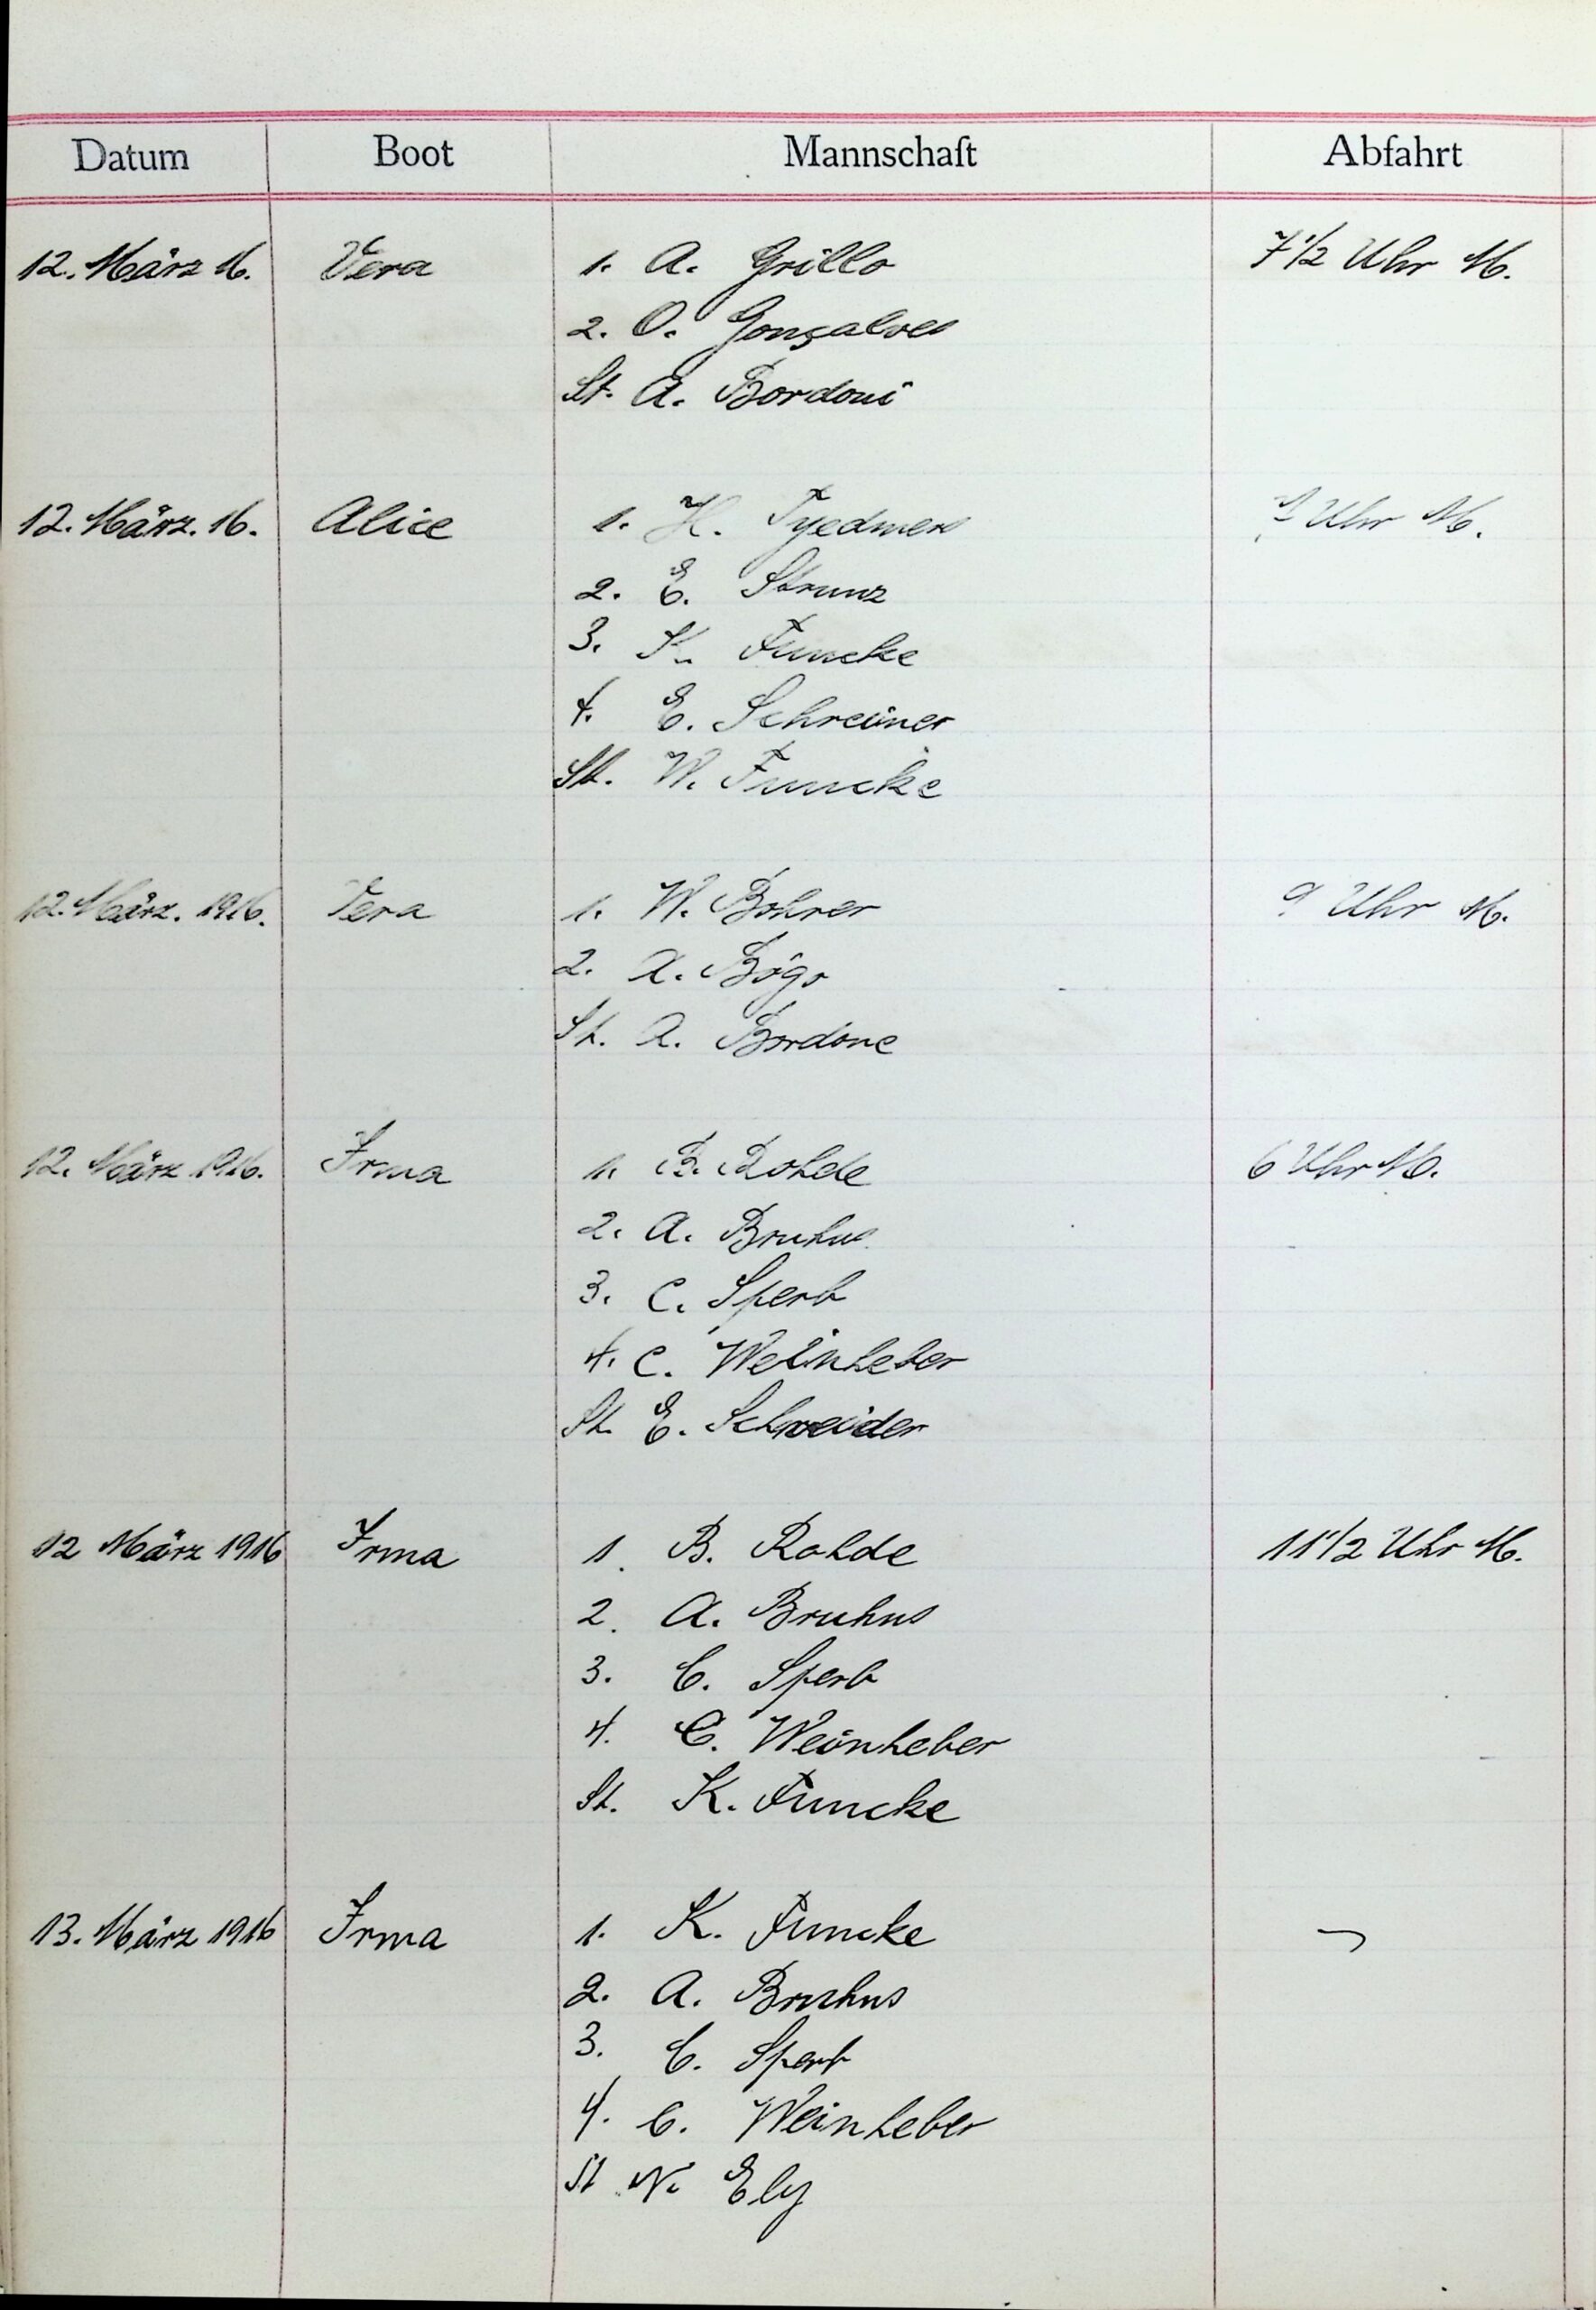 Datum Boot Mannschaft Abfahrt
12. März 16. Vera 1. A. Grillo 7 1/2 Uhr M.
2. O. Gonçalves
St. A. Bordoni
12. März. 16. Alice 1. H. Tyedmers 7 Uhr M.
2. E. Strunz
3. K. Funcke
4. E. Schreiner
St. W. Funcke
12. März. 1916. Vera 1. W. Bohrer 9 Uhr M.
2. A. Bögo
St. A. Bordone
12. März 1916. Irma 1. B. Rohde 6 Uhr M.
2. A. Bruhns
3. C. Sperb
4. C. Weinheber
St. E. Schneider
12 März 1916 Irma 1. B. Rohde 11 1/2 Uhr M.
2. A. Bruhns
3. C. Sperb
4. C. Weinheber
St. K. Funcke
13. März 1916 Irma 1. K. Funcke
2. A. Bruhns
3. C. Sperb
4. C. Weinheber
St N. Ely